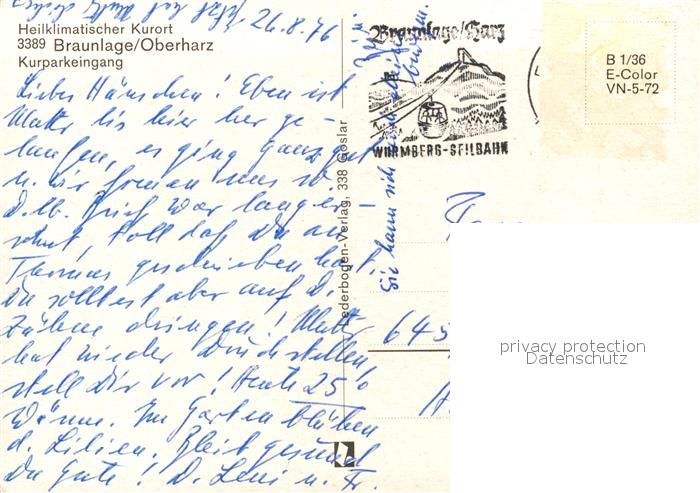 26.8.76
Heilklimatischer Kurort
3389 Braunlage/Oberharz
Kurparkeingang
Liebes Hänschen! Eben ist
Mutter bis hier her ge-
laufen, es ging ganz gut
u. wir freuen uns
D. lb. Brief war langer-
sehnt, toll daß Du an
Thomas geschrieben hast.
Du solltest aber auf D.
Zähne dringen! Mutter
hat wieder Druckstellen
stell Dir vor! Heute 25°
Wärme. Im Garten blühen
d. Lilien. Bleib gesund
Du Gute! D. Leni u. Fr.
Sie kann sich
ederbogen-Verlag, 338 Goslar
Braunlage/Harz
WURMBERG-SEILBAHN
B 1/36
E-Color
VN-5-72
645
privacy protection
Datenschutz